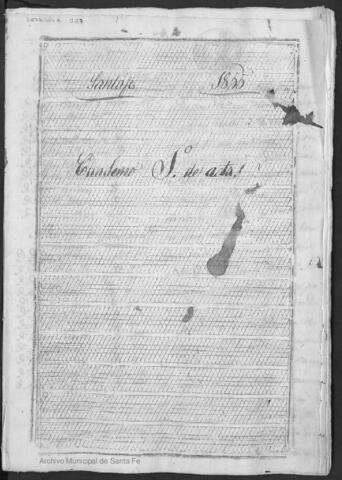 Santafe 1855
Cuaderno 1.º de actas
Archivo Municipal de Santa Fe